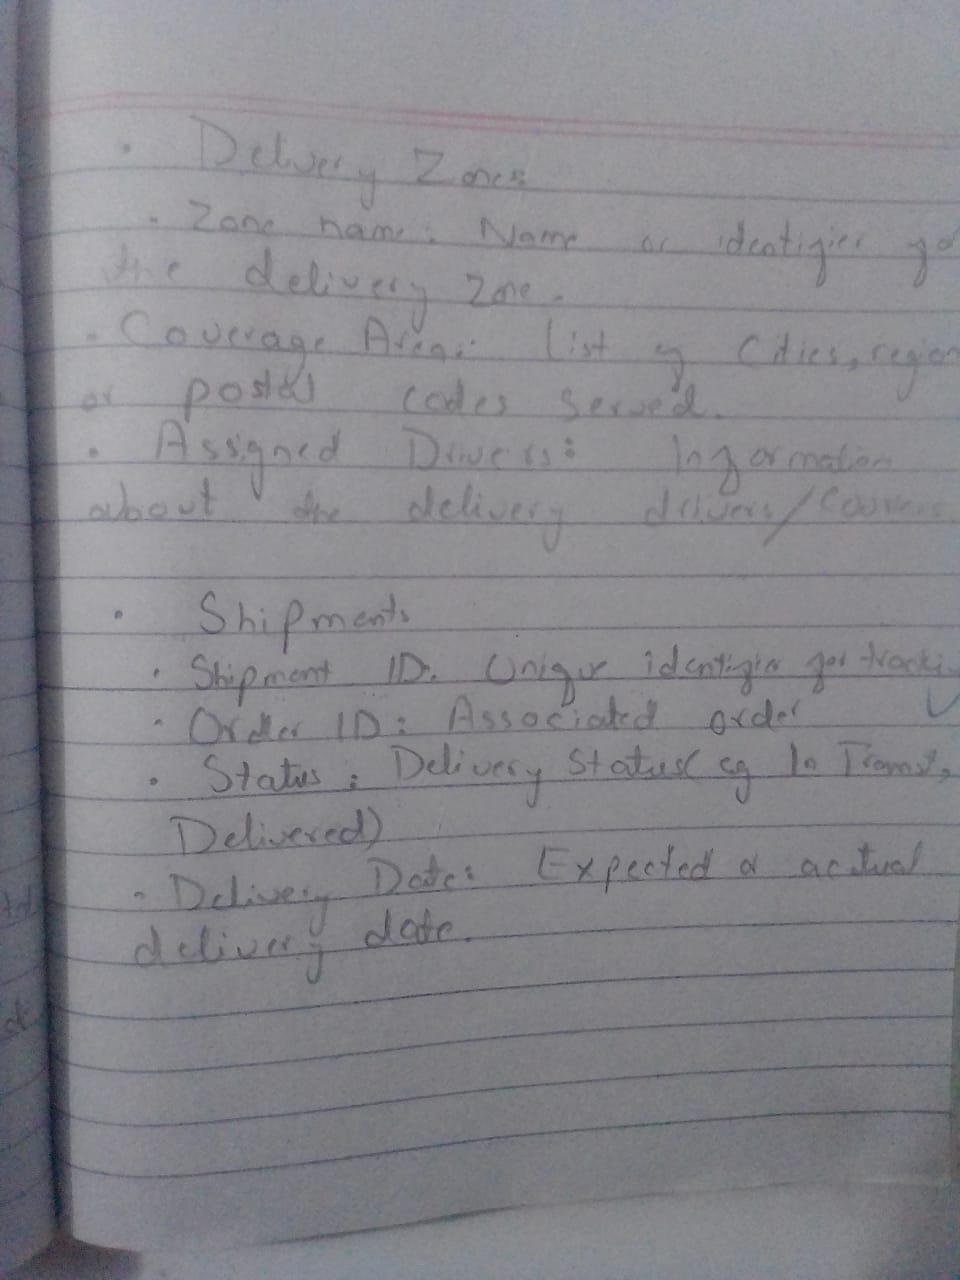 • Delivery Zones
• Zone name: Name or identifier fo
the delivery Zone.
• Coverage Area: List of Cities, region
or postal codes served.
• Assigned Drivers: Information
about the delivery drivers/Couriers
• Shipments
• Shipment ID. Unique identifier for tracki
• Order ID: Associated order
• Status: Delivery Status(eg In Transit,
Delivered)
• Delivery Date: Expected or actual
delivery date.